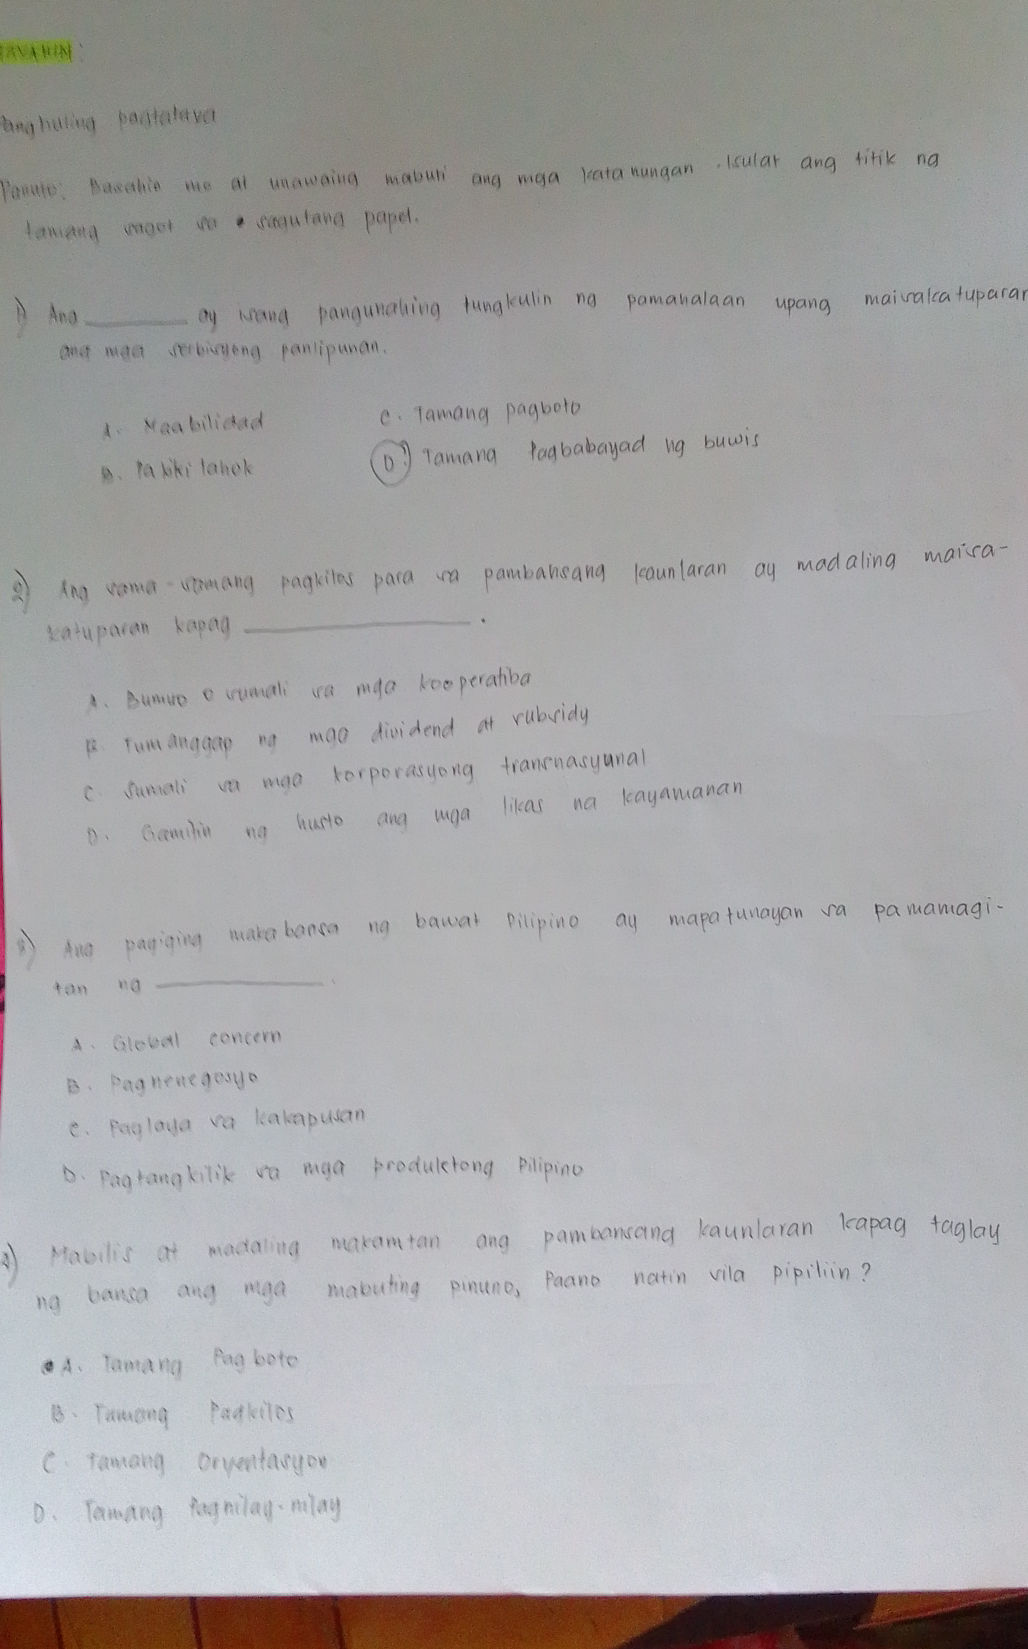 Panghuling pagtataya
Panuto: Basahin mo at unawaing mabuti ang mga katanungan. Isulat ang titik ng
tamang sagot sa sagutang papel.
1) Ang ________ ay isang pangunahing tungkulin ng pamahalaan upang maisakatuparan
ang mga serbisyong panlipunan.
A. Naabilidad
C. Tamang pagboto
B. Pakikilahok
D. Tamang Pagbabayad ng buwis
2) Ang sama-samang pagkilos para sa pambansang kaunlaran ay madaling maisa-
katuparan kapag ________.
A. Bumuo o sumali sa mga kooperatiba
B. Tumanggap ng mga dividend at subsidy
C. Sumali sa mga korporasyong transnasyunal
D. Gamitin ng husto ang mga likas na kayamanan
3) Ang pagiging makabansa ng bawat Pilipino ay mapatunayan sa pamamagi-
tan ng ________.
A. Global concern
B. Pagnenegosyo
C. Paglaya sa kakapusan
D. Pagtangkilik sa mga produktong Pilipino
4) Mabilis at madaling makamtan ang pambansang kaunlaran kapag taglay
ng bansa ang mga mabuting pinuno, Paano natin sila pipiliin?
A. Tamang Pagboto
B. Tamang Pagkilos
C. Tamang Oryentasyon
D. Tamang Pagnilay-nilay